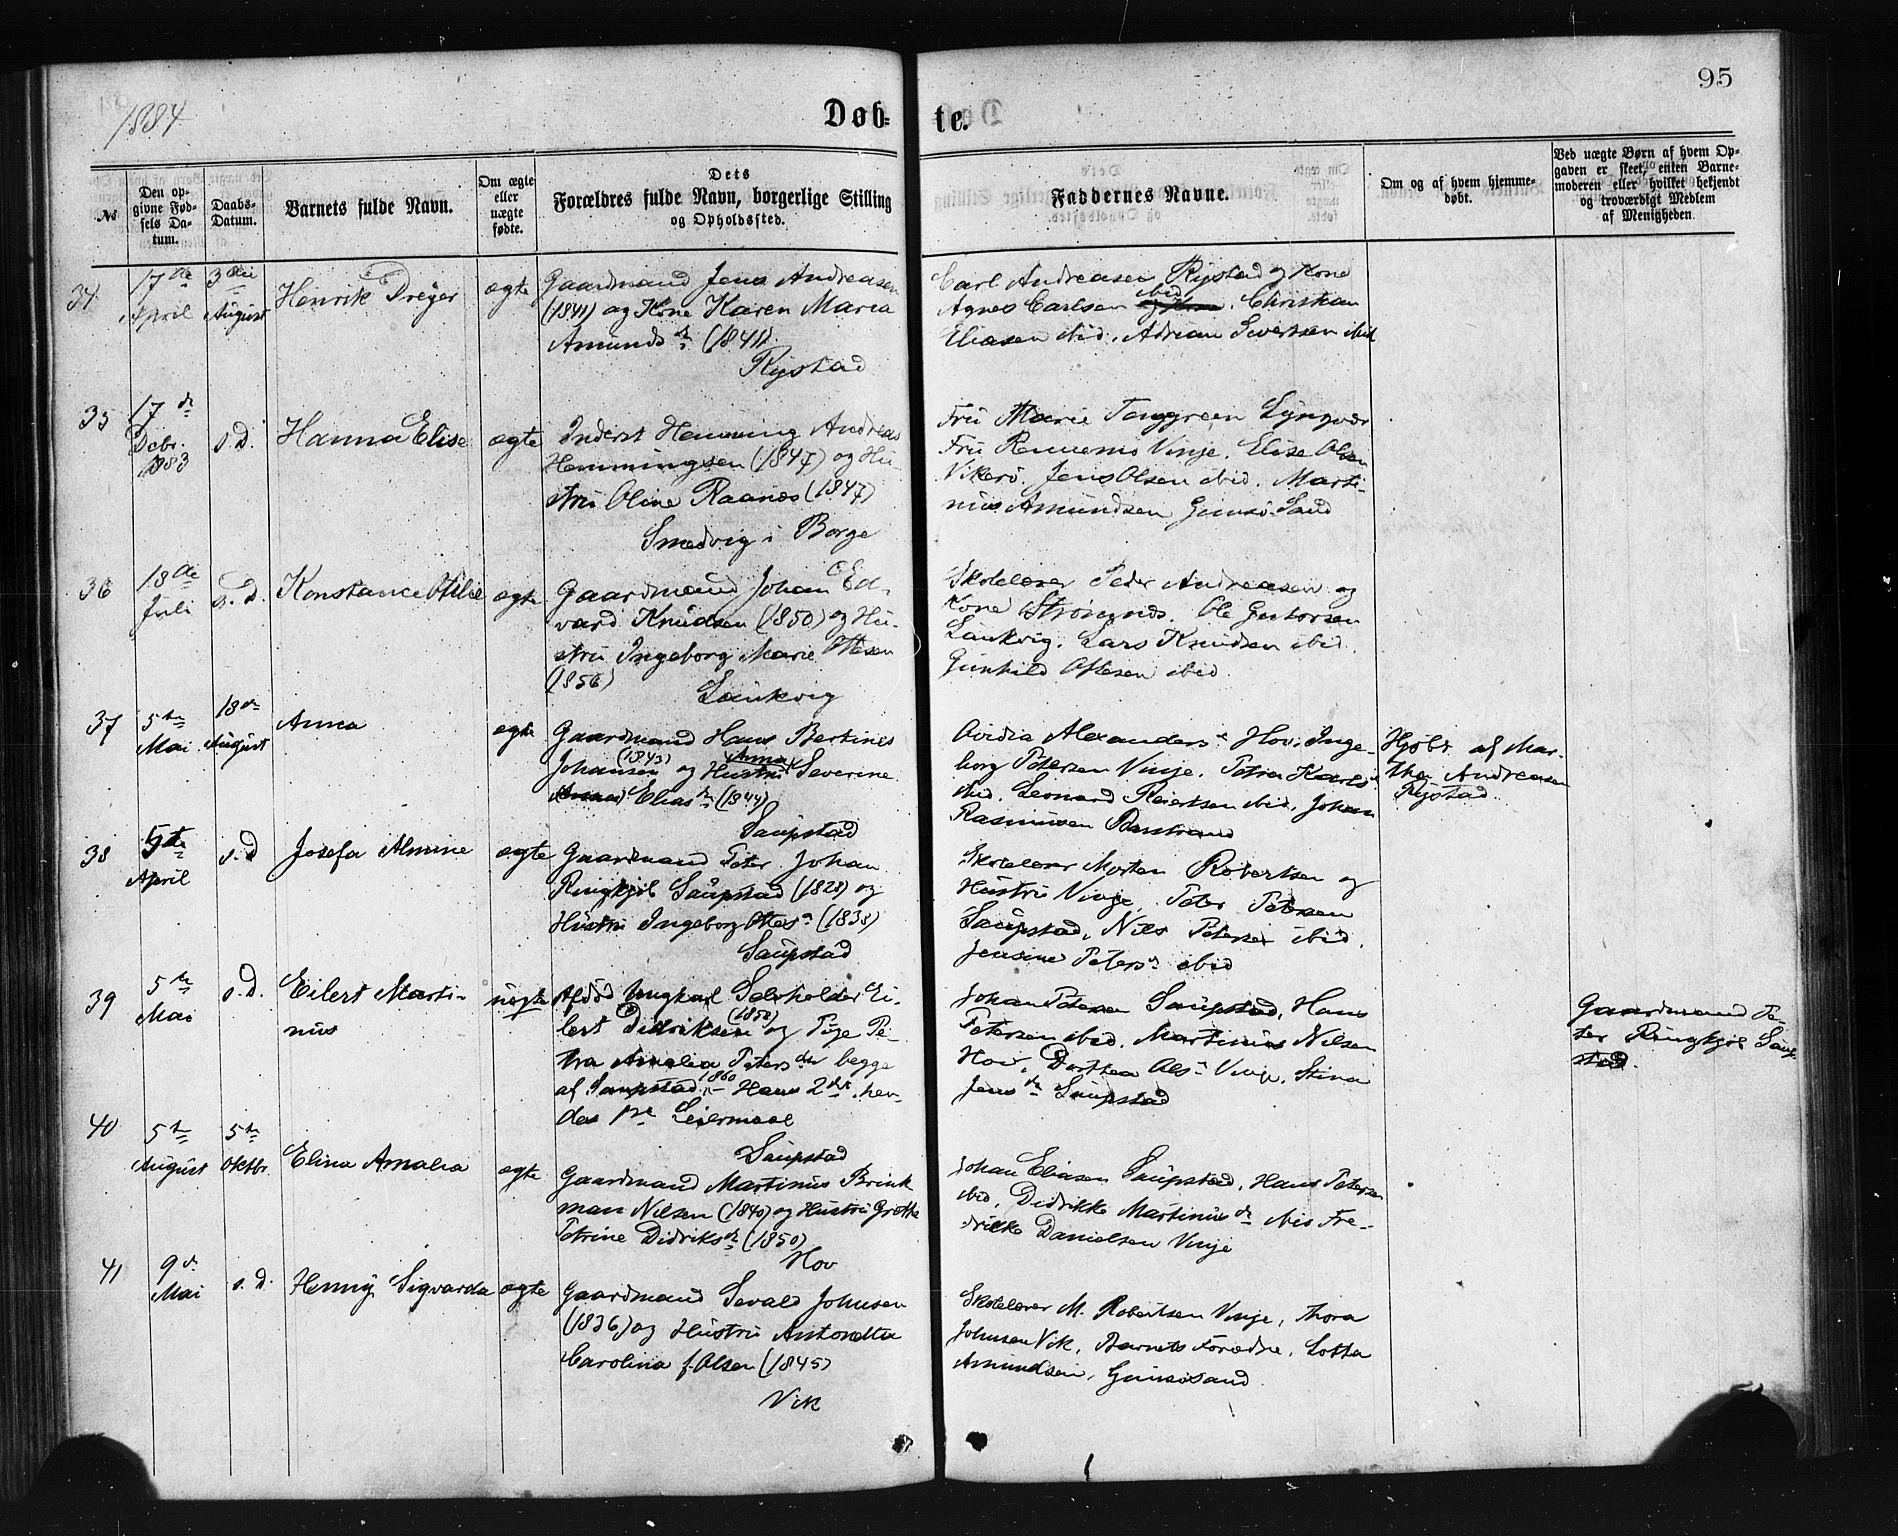 95
1884
Døb-
te.
№
Den op-
givne Fød-
sels Da-
tum.
Daabs-
Datum.
Barnets fulde Navn.
Om ægte
eller
uægte
fødte.
Dets
Forældres fulde Navn, borgerlige Stilling
og Opholdssted.
Faddernes Navne.
Om og af hvem hjemme-
døbt.
Ved uægte Børn af hvem Op-
gaven er skeet, enten Barne-
moderen eller hvilket bekjendt
og troværdigt Medlem
af Menigheden.
34
17de
April
3die
August
Henrik Dreyer
ægte
Gaardmand Jens Andreasen
(1841) og Kone Karen Maria
Amundsdr (1841)
Rystad
Carl Andreasen Rystad og Kone
Agnes Carlsen ibid, Christian
Eliasen ibid, Adrian Sivertsen ibid
35
17de
Debr.
1883
s.d.
Hanna Elise
ægte
Inderst Hemming Andreas
Hemmingsen (1847) og Hu-
stru Oline Raanæs (1847)
Smedvig i Borge
Fru Marie Lyngvær
Fru Vinje. Elise Olsen
Vikerö. Jens Olsen ibid. Marti-
nius Amundsen Gimsö Sand
36
18de
Juli
s.d.
Konstance Otilie
ægte
Gaardmand Johan Ed-
vard Knudsen (1850) og Hu-
stru Ingeborg Marie Ottesen
(1856)
Saukvig
Skolelærer Peder Andreasen og
Kone Strömnes. Ole
Saukvig. Lars Knudsen ibid.
Gunhild Ottesen ibid.
37
5te
Mai
18de
August
Anna
ægte
Gaardmand Hans Bertines
Johansen (1843) og Hustru Anna Severine
Eliasdr (1844)
Saupstad
Ovidia Alexandersdr Hov, Inge-
borg Petersen Vinje. Petra
ibid. Leonard Reiertsen ibid, Johan
Rasmusen
Hjdbt af Mar-
the Andreasen
Rystad
38
5te
April
s.d.
Josefa Almine
ægte
Gaardmand Peter Johan
Ringkjöb Saupstad (1828) og
Hustru Ingeborg Ottesdr (1838)
Saupstad
Skolelærer Morten Robertsen og
Hustru Vinje, Peter Petersen
Saupstad, Nils Petersen ibid,
Jensine Petersdr ibid
39
5te
Mai
s.d.
Eilert Marti-
nus
uægte
Afdöd Ungkarl Selvholder Ei-
lert Didriksen (1850) og Pige Pe-
tra Amalia Petersdr begge
af Saupstad, 1860 - Hans 2det, hen-
des 1ste Leiermaal
Saupstad
Johan Petersen Saupstad, Hans
Petersen ibid. Martinus Nilsen
Hov, Dorthea Olsdr Vinje, Stina
Jensdr Saupstad
Gaardmand Pe-
ter Ringkjöb Saup-
stad.
40
5te
August
5te
Oktbr.
Elina Amalia
ægte
Gaardmand Martinus Brink
man Nilsen (1840) og Hustru Grethe
Petrine Didriksdr (1850)
Hov
Johan Eliasen Saupstad, Hans Petersen
ibid, Didrikke Martinusdr ibid Fre-
drikke Danielsen Vinje
41
9de
Mai
s.d.
Henny Sigvarda
ægte
Gaardmand Sevald Johnsen
(1836) og Hustru Antonetta
Carolina f. Olsen (1845)
Vik
Skolelærer M. Robertsen Vinje, Thora
Johnsen Vik, Barnets Forældre, Lotta
Amundsen, Gimsösand